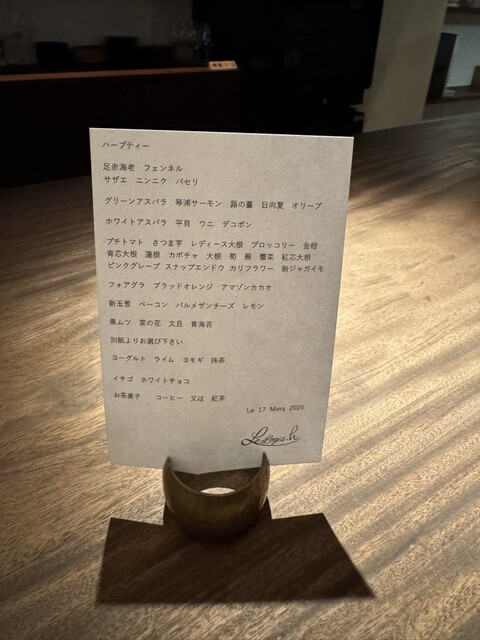 ハーブティー
足赤海老 フェンネル
サザエ ニンニク パセリ
グリーンアスパラ 琴浦サーモン 蕗の薹 日向夏 オリーブ
ホワイトアスパラ 平貝 ウニ デコポン
プチトマト さつま芋 レディース大根 ブロッコリー 金柑
青芯大根 蓮根 カボチャ 大根 筍 蕪 蕾菜 紅芯大根
ピンクグレープ スナップエンドウ カリフラワー 新ジャガイモ
フォアグラ ブラッドオレンジ アマゾンカカオ
新玉葱 ベーコン パルメザンチーズ レモン
黒ムツ 菜の花 文旦 青海苔
別紙よりお選び下さい
ヨーグルト ライム ヨモギ 抹茶
イチゴ ホワイトチョコ
お茶菓子 コーヒー 又は 紅茶
Le 17 Mars 2025